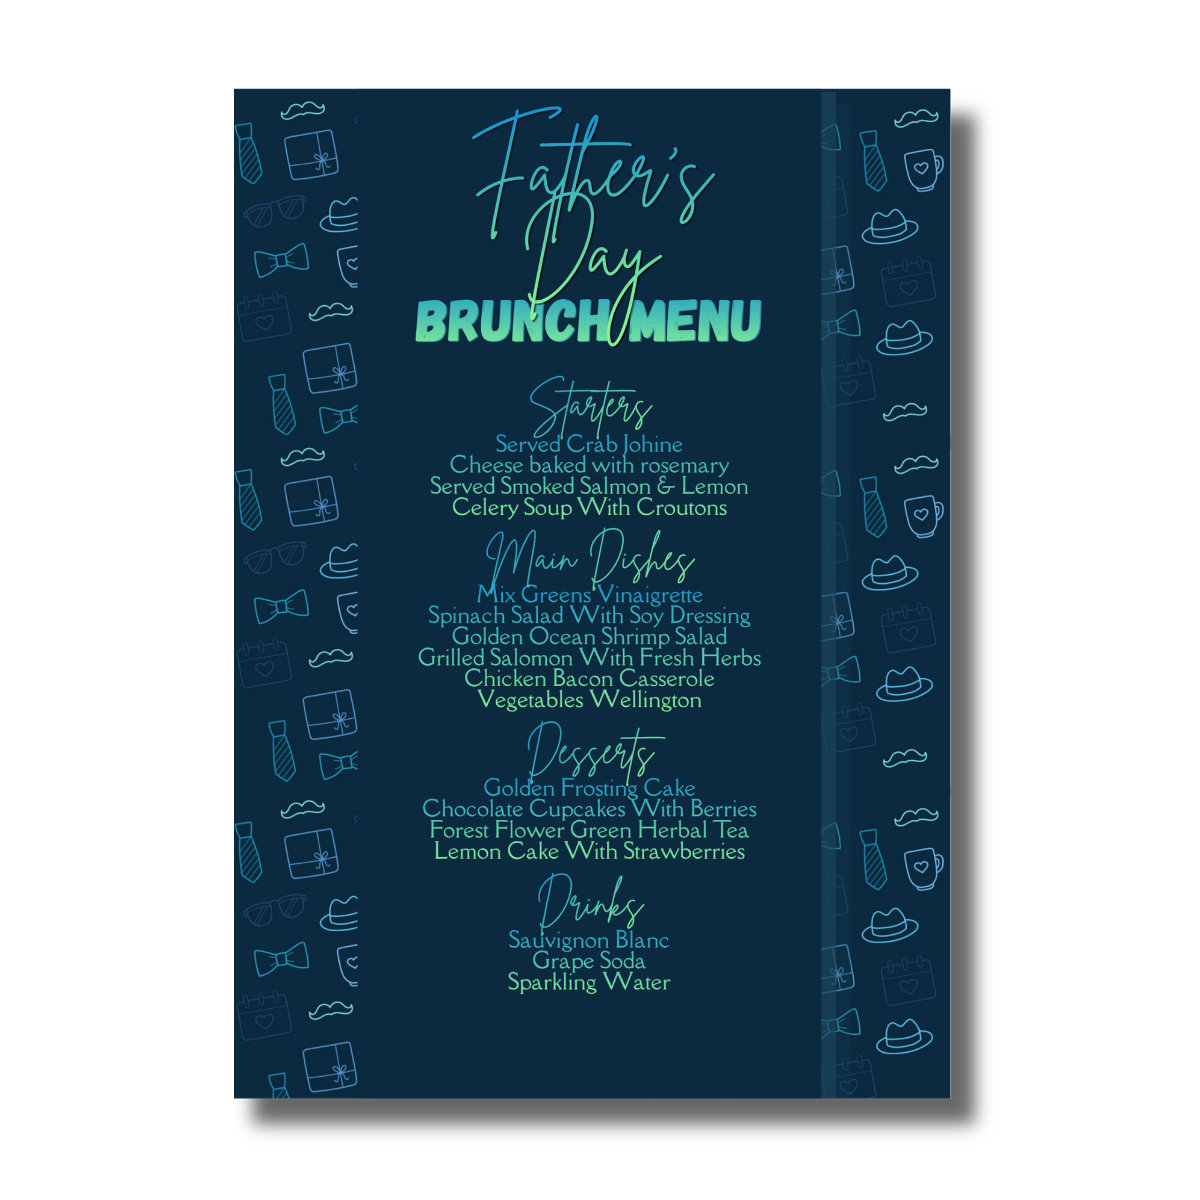 Father's
Day
BRUNCH MENU
Starters
Served Crab Johine
Cheese baked with rosemary
Served Smoked Salmon & Lemon
Celery Soup With Croutons
Main Dishes
Mix Greens Vinaigrette
Spinach Salad With Soy Dressing
Golden Ocean Shrimp Salad
Grilled Salomon With Fresh Herbs
Chicken Bacon Casserole
Vegetables Wellington
Desserts
Golden Frosting Cake
Chocolate Cupcakes With Berries
Forest Flower Green Herbal Tea
Lemon Cake With Strawberries
Drinks
Sauvignon Blanc
Grape Soda
Sparkling Water